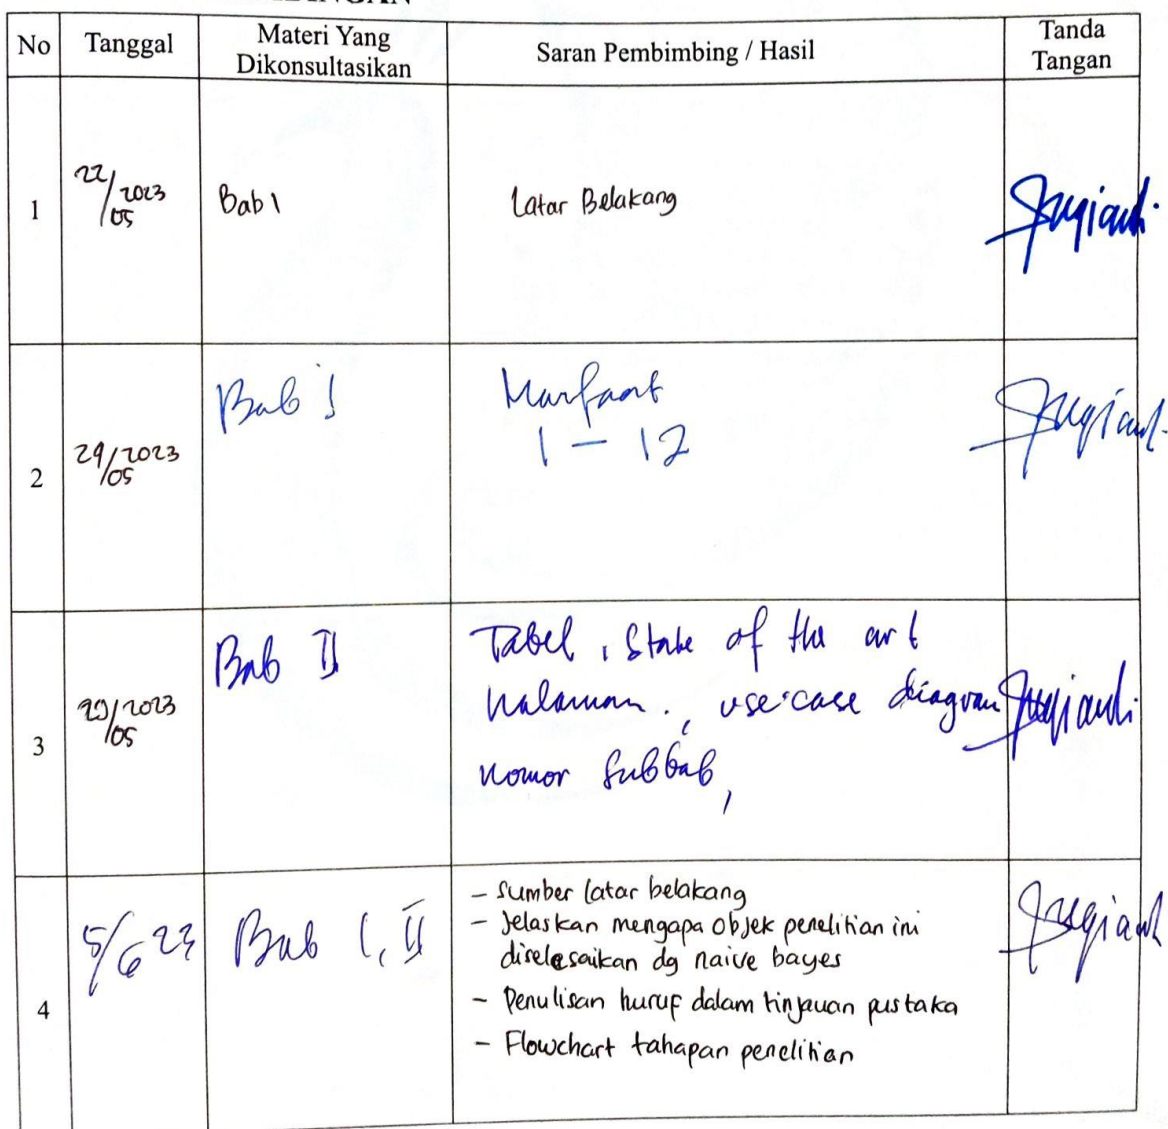 No
Tanggal
Materi Yang
Dikonsultasikan
Saran Pembimbing / Hasil
Tanda
Tangan
1
22/05 2023
Bab 1
Latar Belakang
Sugianti
2
29/05 2023
Bab I
Manfaat
1 - 12
Sugianti
3
29/05 2023
Bab II
Tabel, State of the art
halaman., use case diagram
nomor subbab,
Sugianti
4
5/6 23
Bab I, II
- Sumber latar belakang
- Jelaskan mengapa objek penelitian ini
diselesaikan dg naive bayes
- Penulisan huruf dalam tinjauan pustaka
- Flowchart tahapan penelitian
Sugianti